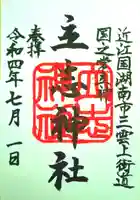 近江国湖南市三雲上街道
国之業三神
立志神社
奉拝
令和四年七月一日